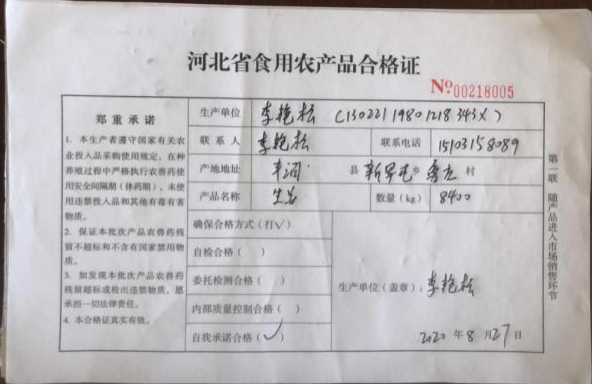 河北省食用农产品合格证
Nº00218005
郑重承诺
1. 本生产者遵守国家有关农
业投入品采购使用规定,在种
养殖过程中严格执行农兽药使
用安全间隔期(休药期),未使
用违禁投入品和其他有毒有害
物质。
2. 保证本批次产品农兽药残
留不超标和不含有国家禁用物
质。
3. 如发现本批次产品农兽药
残留超标或检出违禁物质,愿
承担一切法律责任。
4. 本合格证真实有效。
生产单位 李艳松 (13022119801218343X)
联系人 李艳松 联系电话 15103158089
产地地址 丰润 县 新军屯 乡 村
产品名称 数量(kg) 8400
确保合格方式(打√)
自检合格( )
委托检测合格( )
内部质量控制合格( )
自我承诺合格(√)
生产单位(盖章):李艳松
2020 年 8 月 27 日
第一联 随产品进入市场销售环节